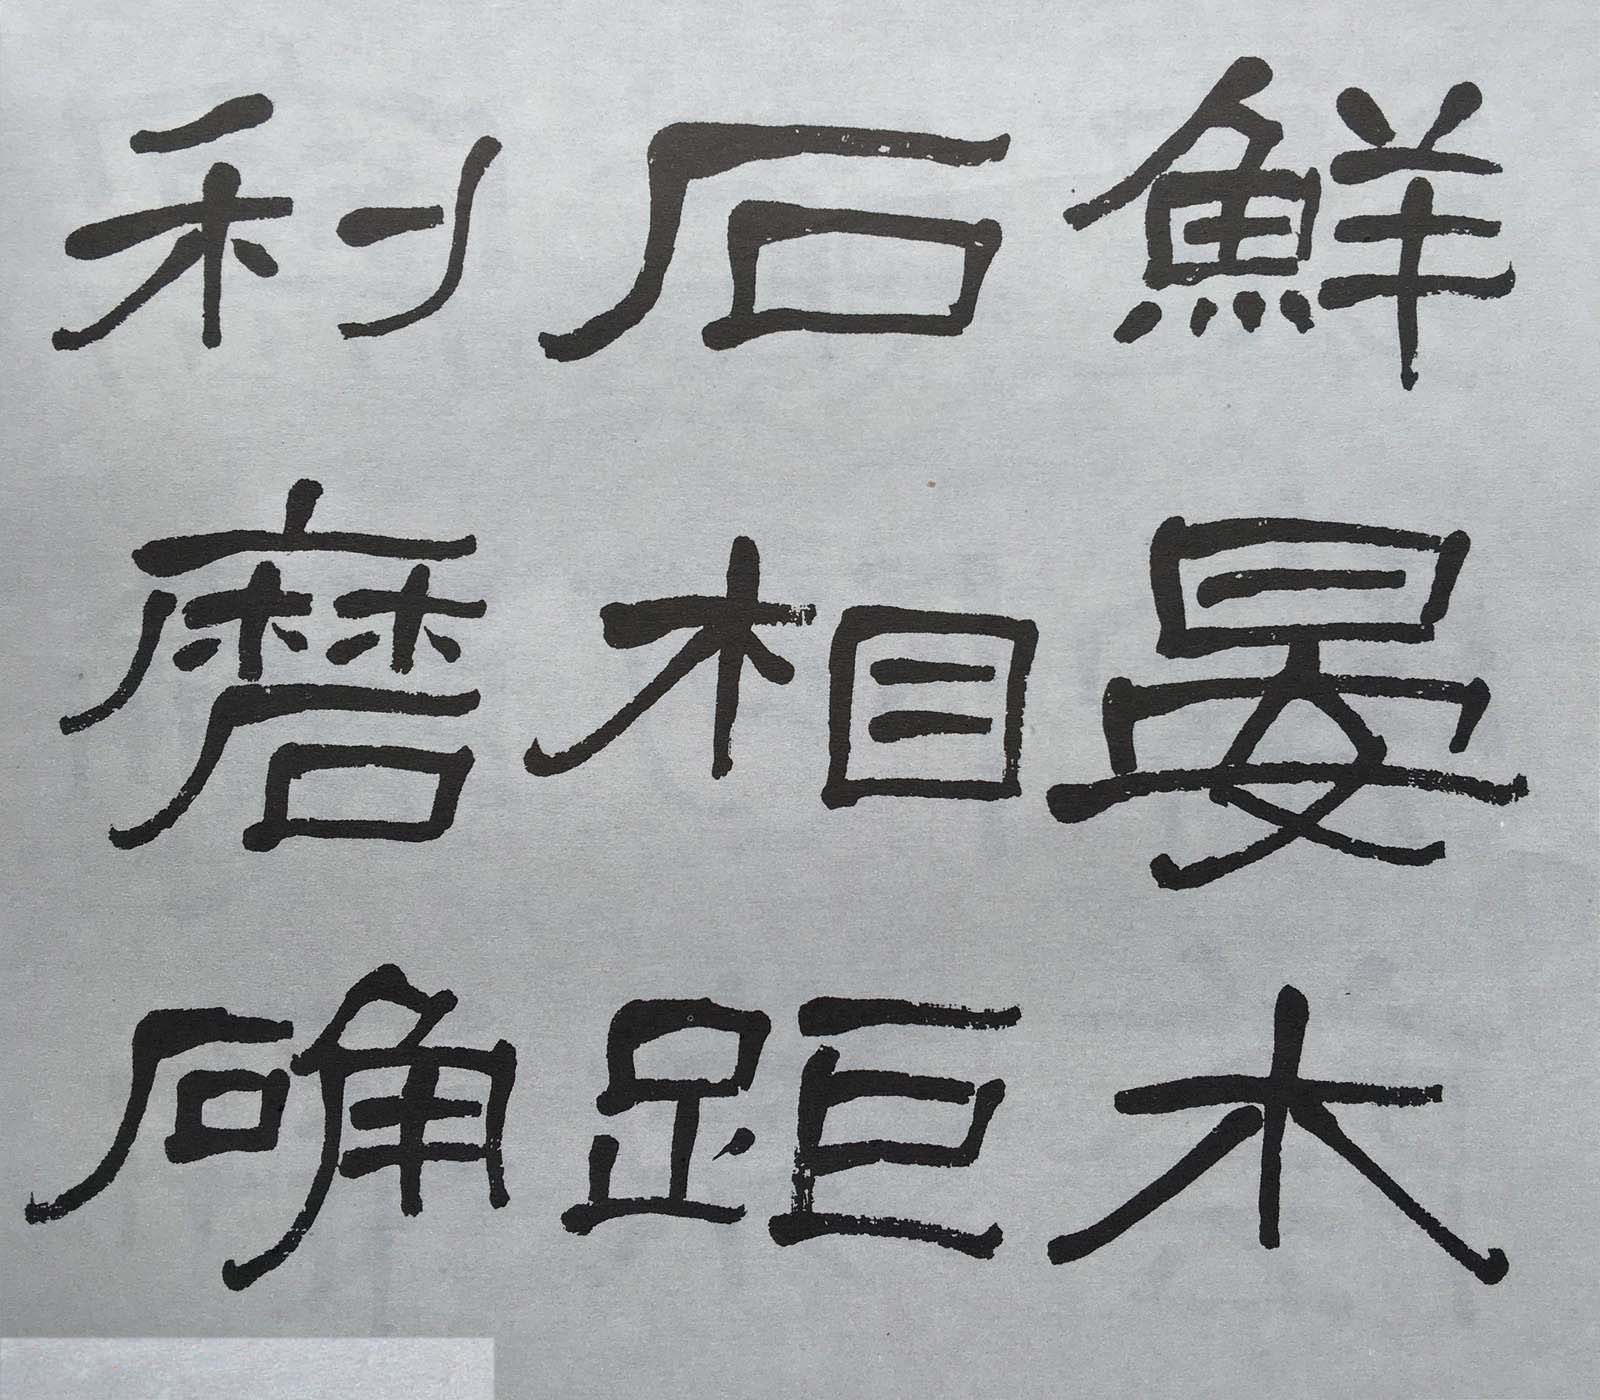 鮮晏木
石相距
利磨确